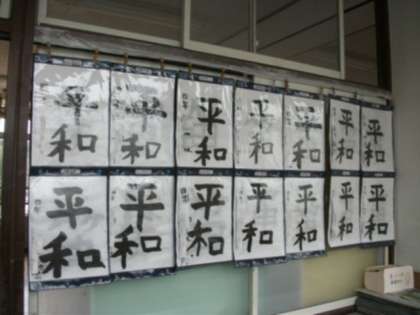 平和 平和 平和 平和 平和 平和 平和
平和 平和 平和 平和 平和 平和 平和